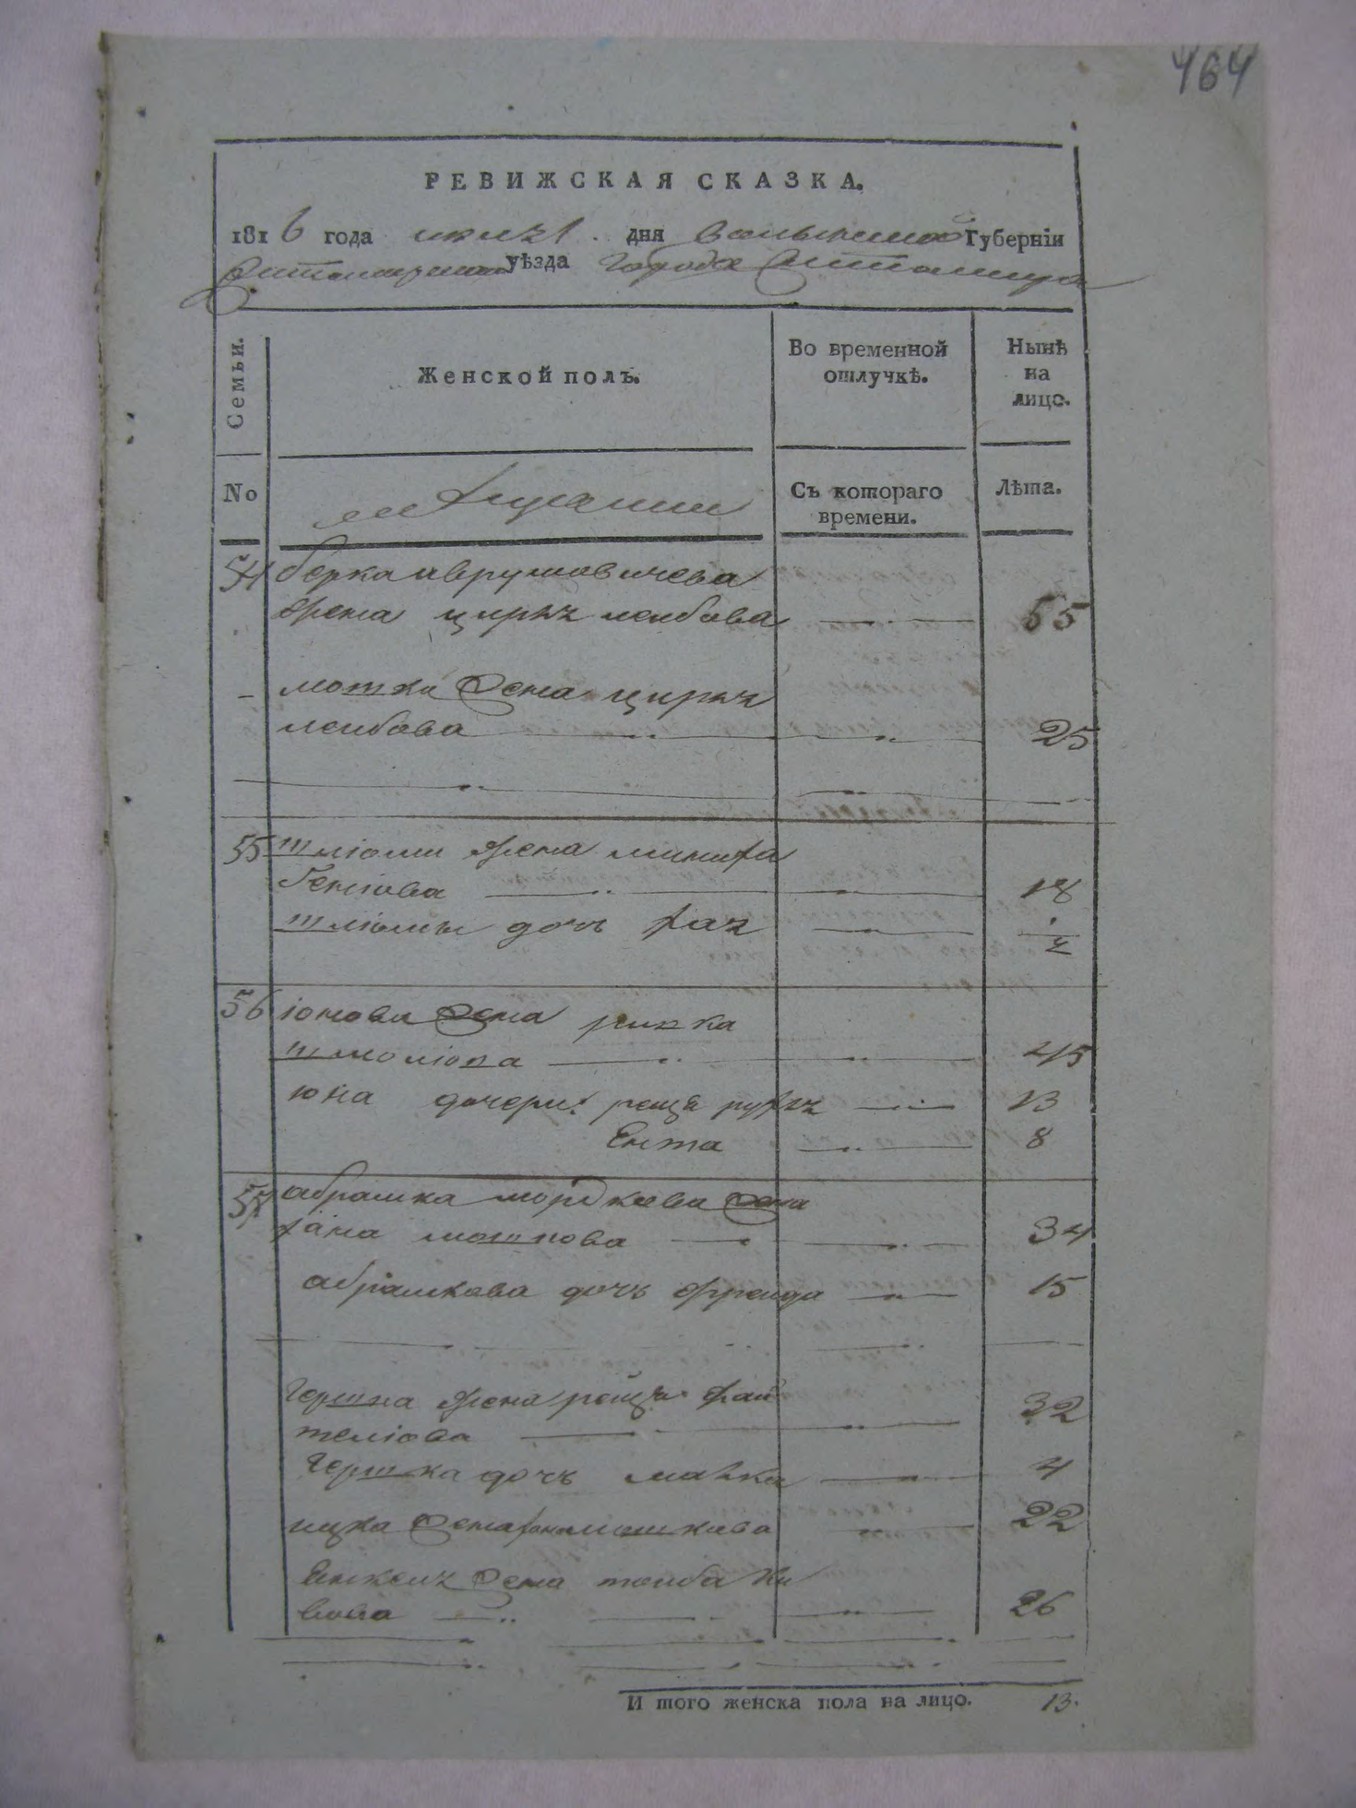 464
РЕВИЖСКАЯ СКАЗКА.
1816 года июля 1 дня Волынской Губерніи
Житомирскаго уѣзда города Житомира
Семьи.
Женской полъ.
Во временной отлучкѣ.
Нынѣ на лицо.
No
Съ котораго времени.
Лѣта.
54 берка аврумовичева
жена циря лейбова 55
мошки жена циря
лейбова 25
55 шліоми жена
18
шліомы дочь хая 1/2
56 іонова жена ривка
шмоліова 45
іона дочери: рейзя 13
Ента 8
57 абрамка мордкова жена
хана мошкова 34
абрамкова дочь фрейда 15
гершка жена рейзя фай
теліова 32
гершка дочь малка 4
ицка жена хана мошкова 22
жена тойба
26
И того женска пола на лицо. 13.